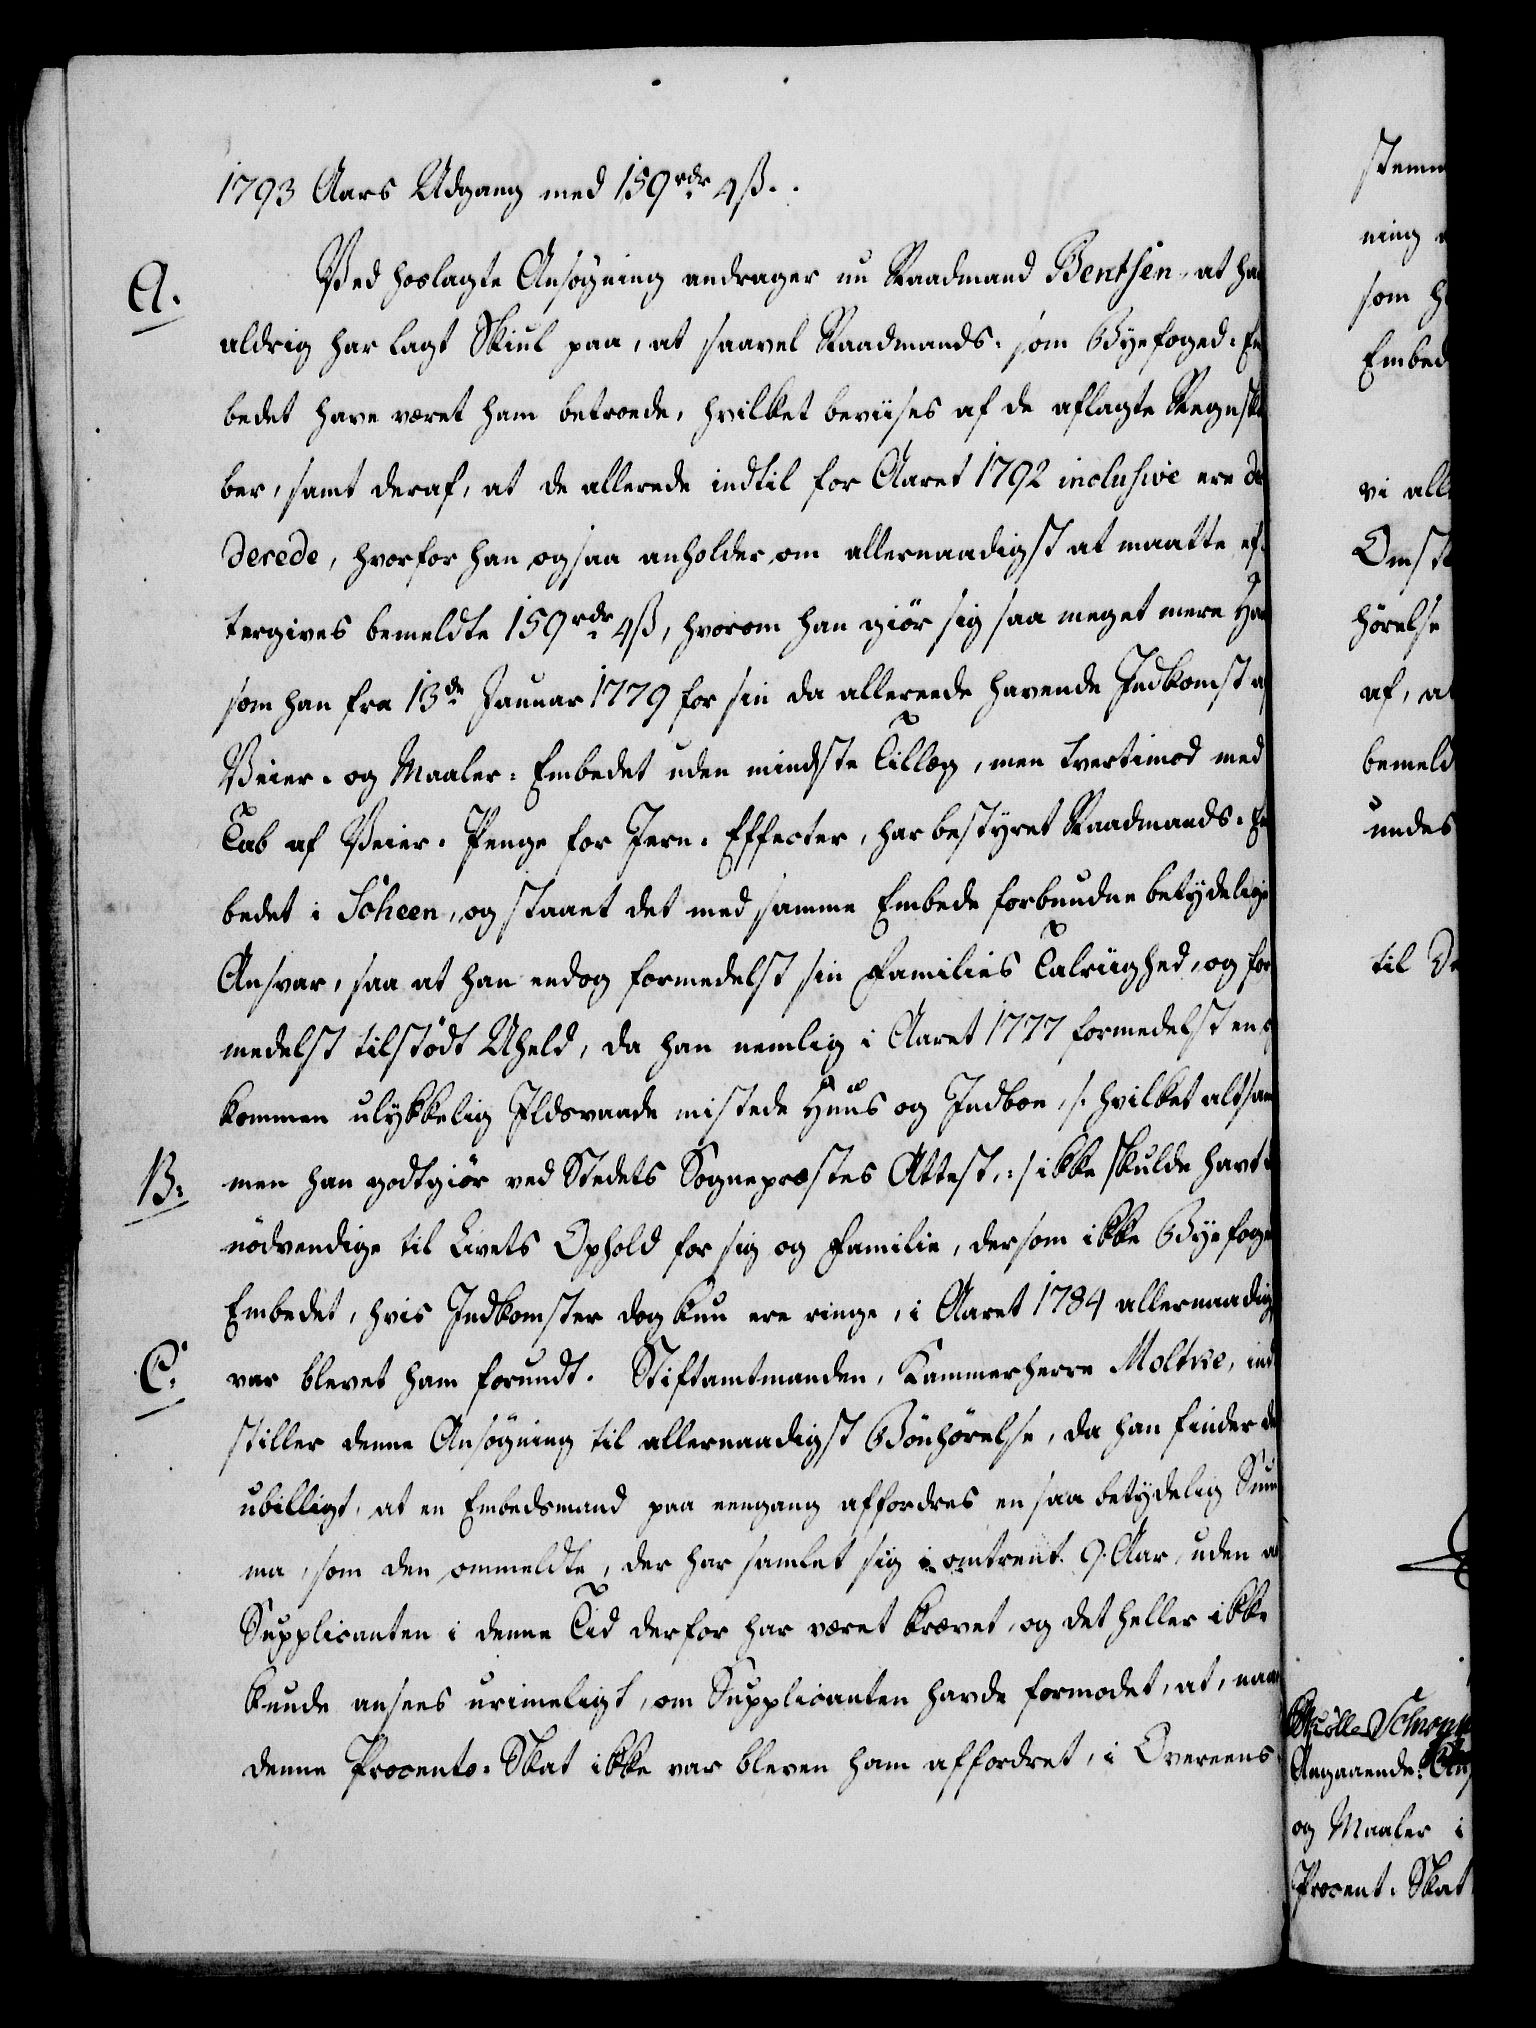 1793 Aars Udgang med 159 rdr 4 ß.
A. Ved hoslagte Ansøgning andrager nu Raadmand Bentsen, at ha
aldrig har lagt Skiul paa, at saavel Raadmands- som Byefoged-Em
bedet have været ham betroede, hvilket beviises af de aflagte Regnsk
ber, samt deraf, at de allerede indtil for Aaret 1792 inclusive ere de
derede, hvorfor han ogsaa anholder om allernaadigst at maatte ef-
tergives bemeldte 159 rdr 4 ß, hvorom han giör sig saa meget mere Haa
som han fra 13de Januar 1779 for sin da allereede havende Indkomst af
Veier- og Maaler-Embedet uden mindste Tillæg, men tvertimod med
Tab af Veier-Penge for Jern-Effecter, har bestyret Raadmands-Em
bedet i Scheen, og staaet det med samme Embede forbundne betydelige
Ansvar, saa at han endog formedelst sin Families Talriighed, og for
medelst tilstödt Uheld, da han nemlig i Aaret 1777 formedelst en o
kommen ulykkelig Ildsvaade mistede Huus og Indboe, /: hvilket altsam
B: men han godtgiör ved Stedets Sognepræstes Attest, :/ ikke skulde havt d
nödvendige til Livets Ophold for sig og Familie, dersom ikke Byefoge
Embedet, hvis Indkomster dog kun ere ringe, i Aaret 1784 allernaadig
C. var blevet ham forundt. Stiftamtmanden, Kammerherre Moltke, ind
stiller denne Ansögning til allernaadigst Bönhörelse, da han finder de
ubilligt, at en Embedsmand paa eengang affordres en saa betydelig Sum
ma, som den ommeldte, der har samlet sig i omtrent 9 Aar, uden at
Supplicanten i denne Tid derfor har været krævet, og det heller ikke
kunde ansees urimeligt, om Supplicanten havde formodet, at, naar
denne Procento-Skat ikke var bleven ham affordret, i Overeens-
stemm
ning
som h
Embed
vi all
Omst
hörelse
af, at
bemeld
undes
til De
Schwen
Angaaende An
og Maaler i
Procent-Skat